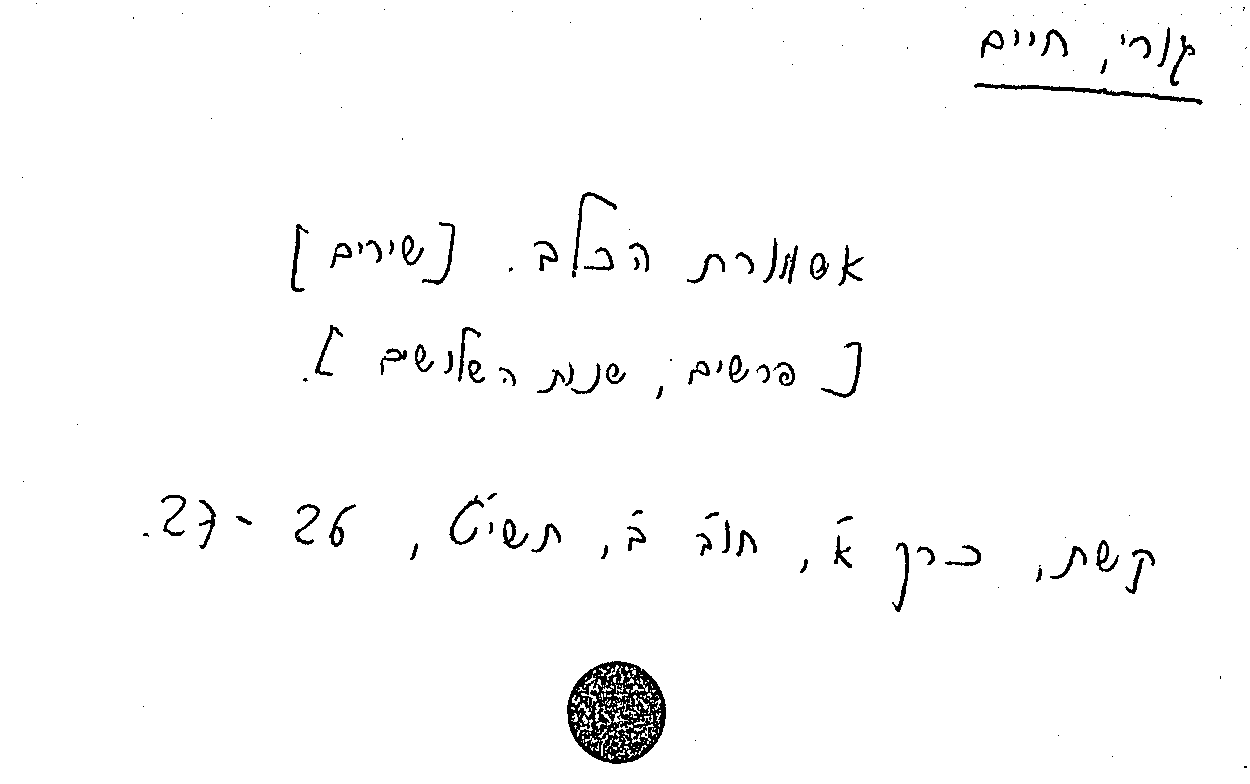 גורי, חיים
אשמורת הכלב. [שירים]
[פרשים, שנות השלושים].
קשת, כרך א', חוב' ב', תשי"ט, 26 - 27.